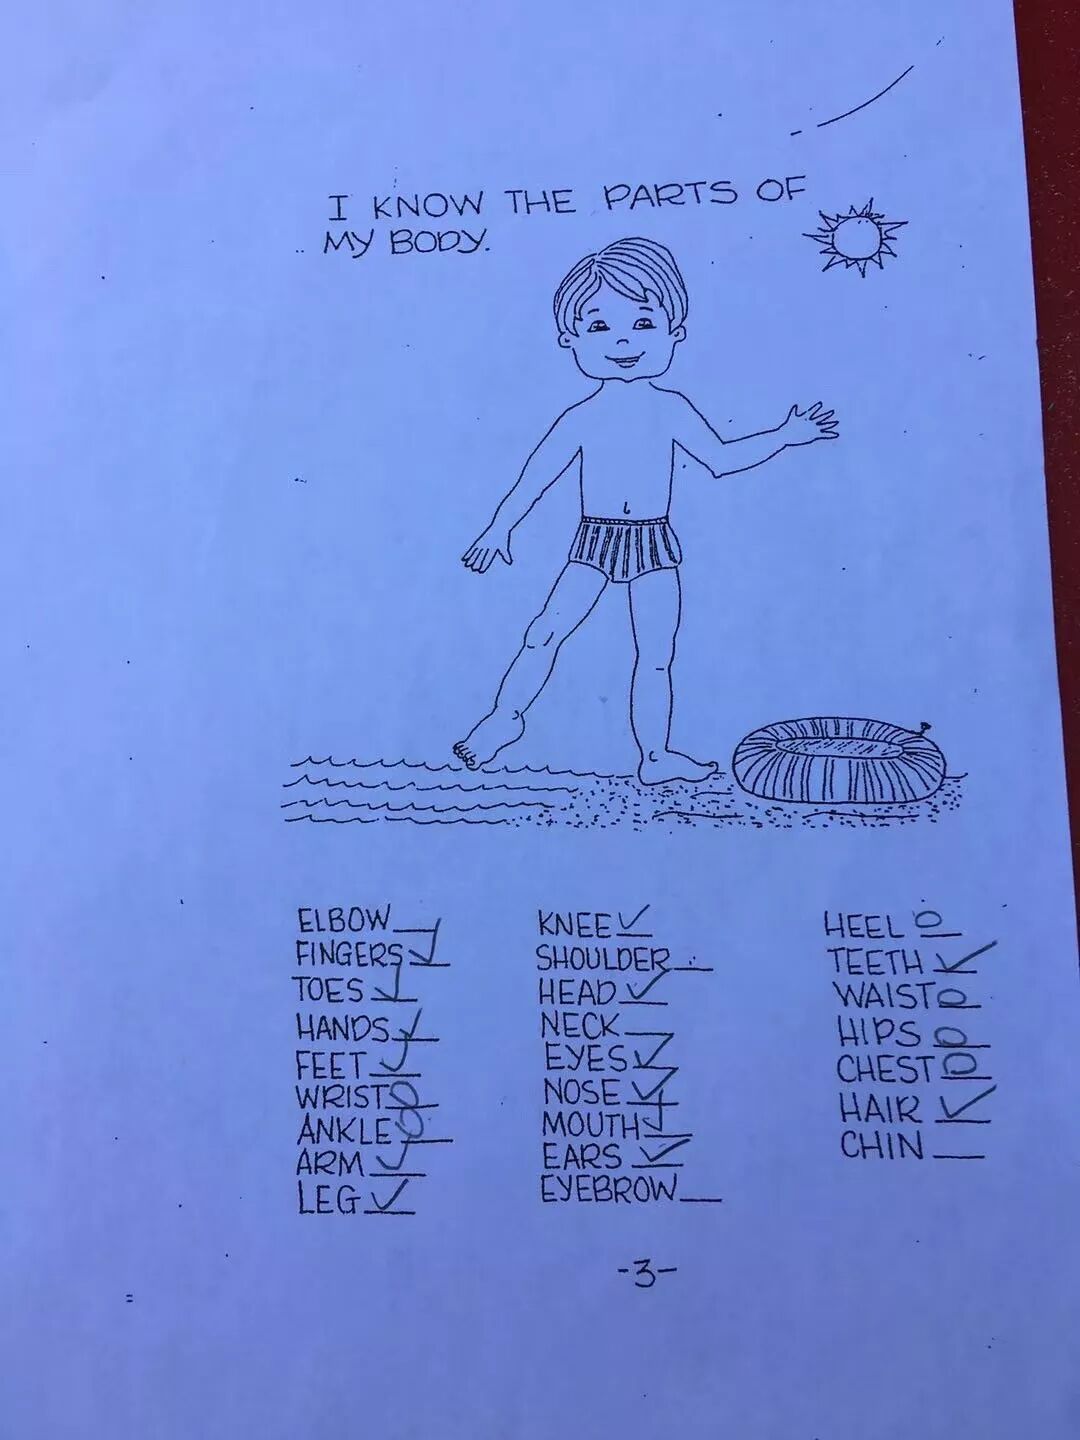 I KNOW THE PARTS OF
MY BODY.
ELBOW
FINGERS
TOES
HANDS
FEET
WRIST
ANKLE
ARM
LEG
KNEE
SHOULDER
HEAD
NECK
EYES
NOSE
MOUTH
EARS
EYEBROW
HEEL
TEETH
WAIST
HIPS
CHEST
HAIR
CHIN
-3-